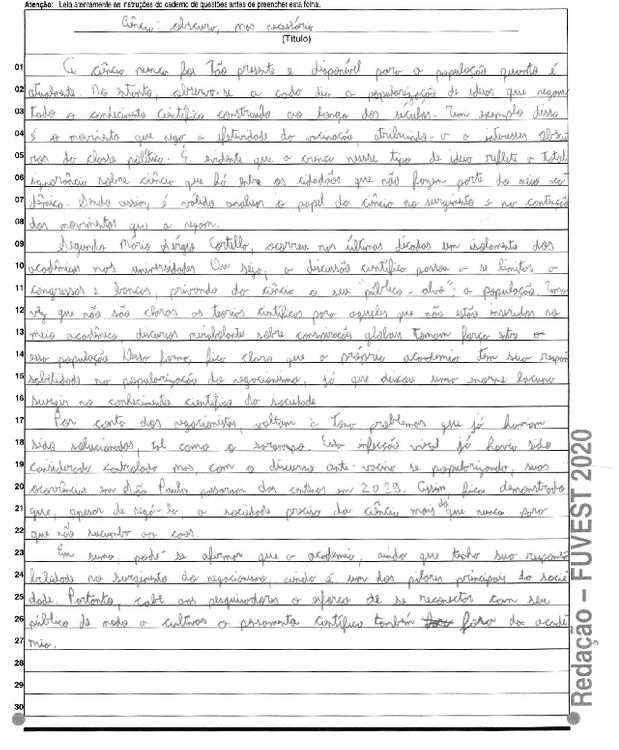 Atenção: Leia atentamente as instruções do caderno de questões antes de preencher esta folha.
Ciência: obscura, mas necessária
(Título)
01 A ciência nunca foi tão presente e disponível para a população quanto é
02 atualmente. No entanto, observa-se a cada dia a popularização de ideias que negam
03 todo o conhecimento científico construído ao longo dos séculos. Um exemplo disso
04 é o movimento que nega a efetividade da vacinação, atribuindo-a a interesses obscu
05 ros da classe política. É evidente que a crença nesse tipo de ideia reflete a total
06 ignorância sobre ciência que há entre os cidadãos que não fazem parte do meio aca
07 dêmico. Sendo assim, é válido analisar o papel da ciência no surgimento e na contenção
08 dos movimentos que a negam.
09 Segundo Mário Sérgio Cortella, ocorreu nas últimas décadas um isolamento dos
10 acadêmicos nas universidades. Ou seja, a discussão científica passou a se limitar a
11 congressos e bancas, privando da ciência o seu "público-alvo": a população. Uma
12 vez que não são claras as teorias científicas para aqueles que não estão inseridos no
13 meio acadêmico, discursos mirabolantes sobre conspirações globais tomam força entre a
14 essa população. Dessa forma, fica claro que a própria academia tem sua respon
15 sabilidade na popularização do negacionismo, já que deixou uma enorme lacuna
16 surgir no conhecimento científico da sociedade.
17 Por conta dos negacionistas, voltam à tona problemas que já haviam
18 sido solucionados, tal como o sarampo. Essa infecção viral já havia sido
19 considerada controlada mas, com o discurso anti-vacina se popularizando, suas
20 ocorrências em São Paulo passaram das centenas em 2019. Assim, fica demonstrado
21 que, apesar de negá-la a sociedade precisa da ciência mais do que nunca para
22 que não sucumba ao caos.
23 Em suma, pode-se afirmar que a academia, ainda que tenha sua responsa
24 bilidade no surgimento do negacionismo, ainda é um dos pilares principais da socie
25 dade. Portanto, cabe aos pesquisadores o esforço de se reconectar com seu
26 público de modo a cultivar o pensamento científico também fora da acadê
27 mia.
28
29
30
Redação – FUVEST 2020